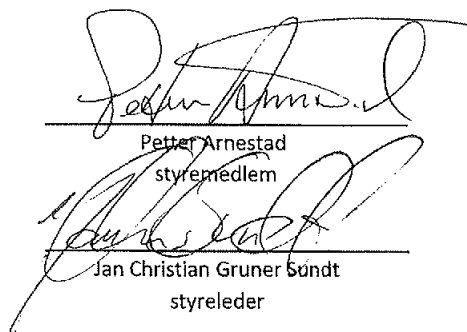 Petter Arnestad
styremedlem
Jan Christian Gruner Sundt
styreleder